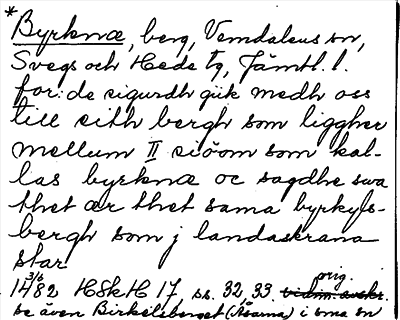 *
Byrknæ, berg, Vemdalens sn,
Svegs och Hede tg, Jämtl. l.
for: de sigurdh gik medh oss
till eith bergh som liggher
mellum II siöom som kal-
las byrknæ oc sagdhe swa
thet ær thet sama byrkyls-
bergh som j landaskrana
star
14 3/6 82 HSkH 17, ss. 32, 33. orig.
se även Birkelsberget (Åsarna) i sma sn